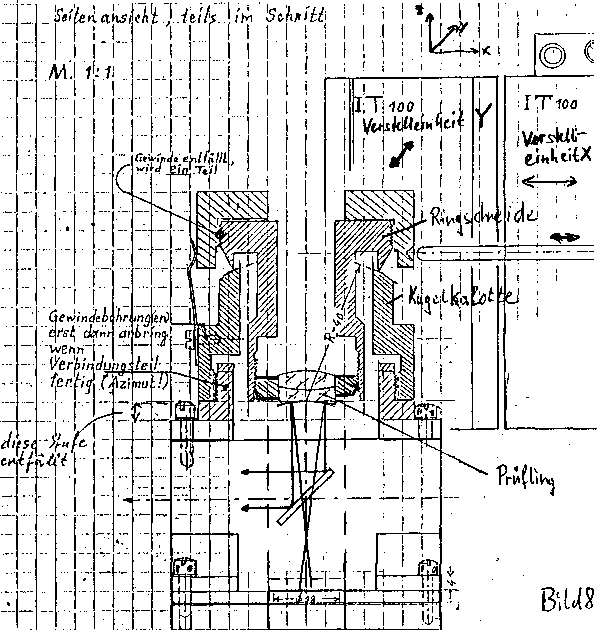 Seitenansicht, teils im Schnitt
M. 1:1
z
y
x
I.T. 100
Verstelleinheit Y
I T 100
Verstell-
einheit X
Gewinde entfällt,
wird ein Teil
Ringschneide
Kugelkalotte
R=40
Gewindebohrungen
erst dann anbring.
wenn
Verbindungsteil
fertig (Azimut!)
diese Stufe
entfällt
Prüfling
Bild8